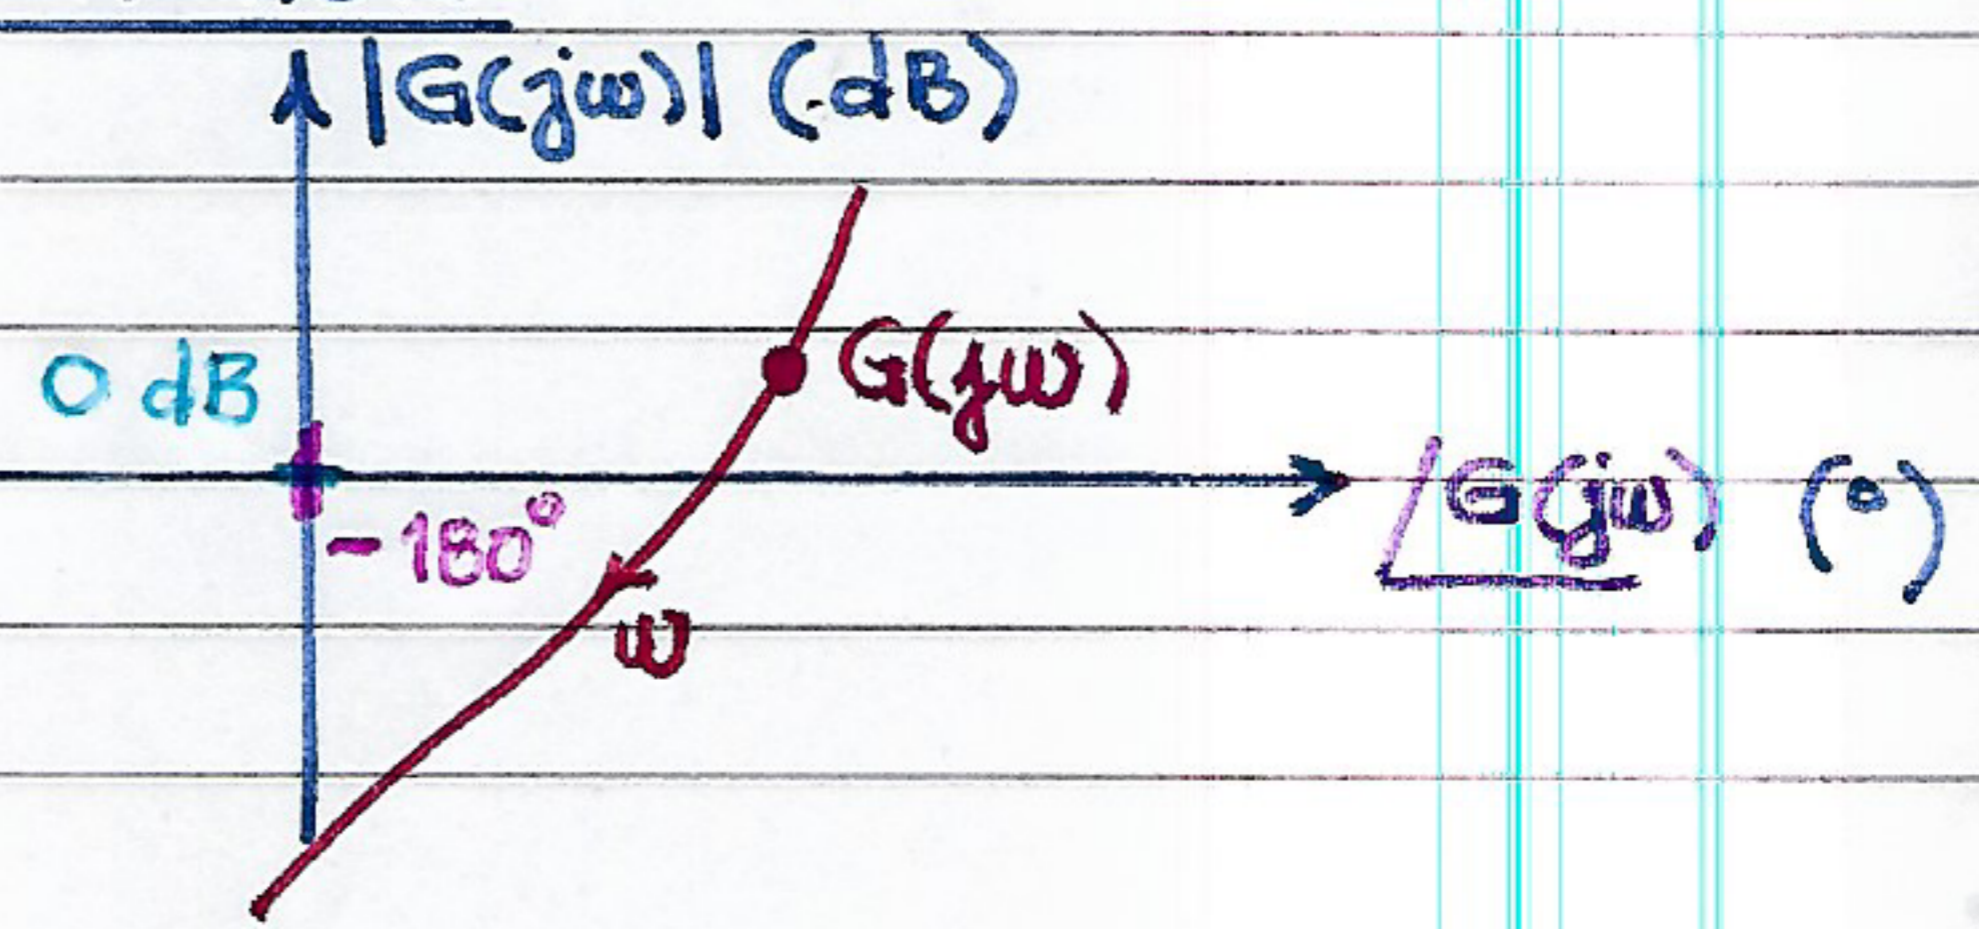 |G(jω)| (dB)
0 dB
G(jω)
-180°
∠G(jω) (°)
ω